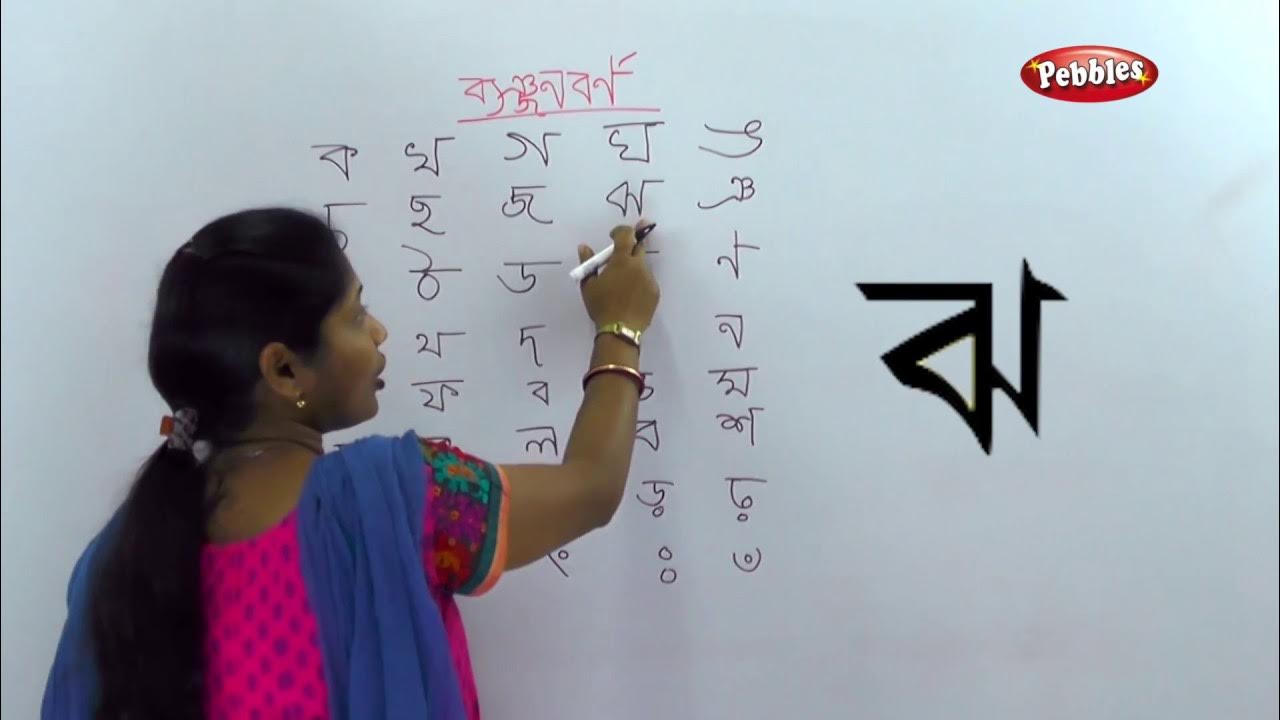 Pebbles
ব্যঞ্জনবর্ণ
ক খ গ ঘ ঙ
ছ জ ঝ ঞ
ঠ ড ণ
থ দ ন
ফ ব ম
ল ব শ
ড় ঢ়
ং ঃ ঁ
ঝ